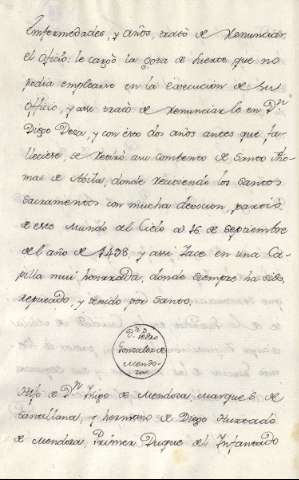 Enfermedades, y años, trató de Renunciar
el oficio. le cargò la gota de suerte que no
podia emplearse en la execucion de su
Officio, y assi trató de renunciarlo en Dⁿ
Diego Deza, y con esto dos años antes que fa-
lleciese, se retirò a su combento de Santo Tho-
mas de Abila, donde reciviendo los Santos
Sacramentos con mucha devocion, partió
de este Mundo al Cielo a 16 de Septiembre
del año de 1498, y assi Iace en una Ca-
pilla mui honrrada, donde siempre ha sido
reputado, y tenido por Santo.
Dⁿ Pedro
Gonzalez de
Mendo-
za
Hijo de Dⁿ Iñigo de Mendoza, Marques de
Santillana, y hermano de Diego Hurtado
de Mendoza, Primer Duque del Infantado